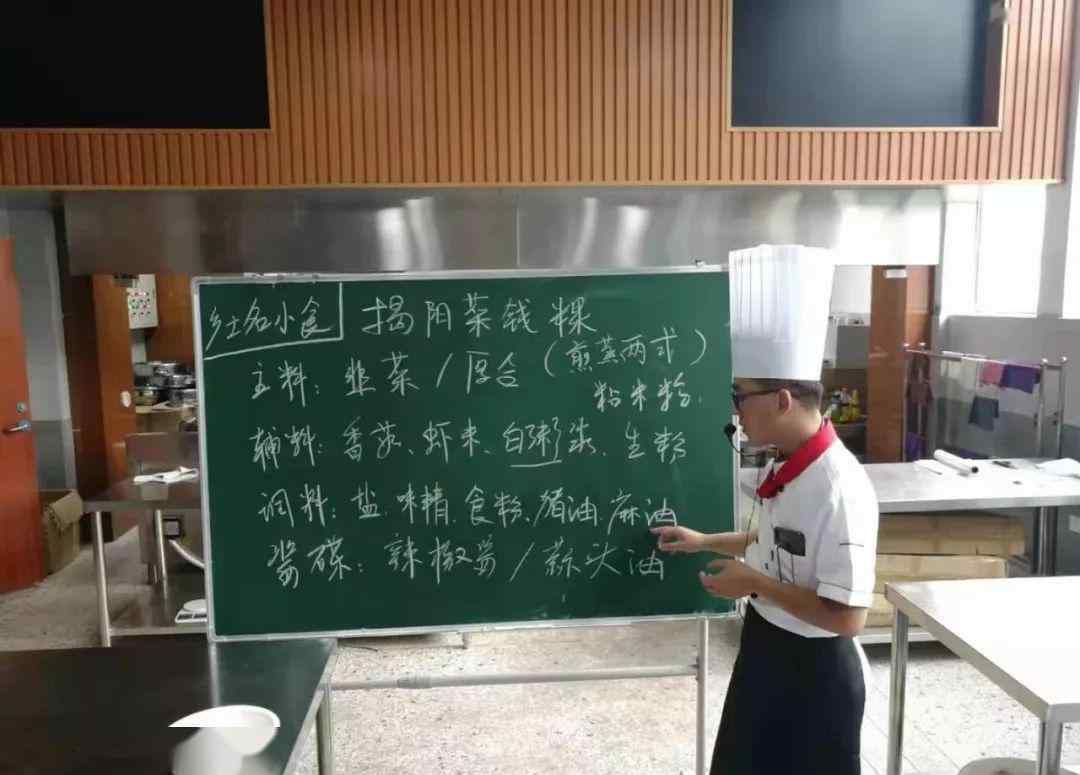 乡土名小食 揭阳菜钱粿
主料：韭菜/厚合（煎蒸两式）
粘米粉.
辅料：香菇、虾米、白粥浆、生粉
调料：盐.味精.食粉、猪油.麻油
酱碟：辣椒酱/蒜头油